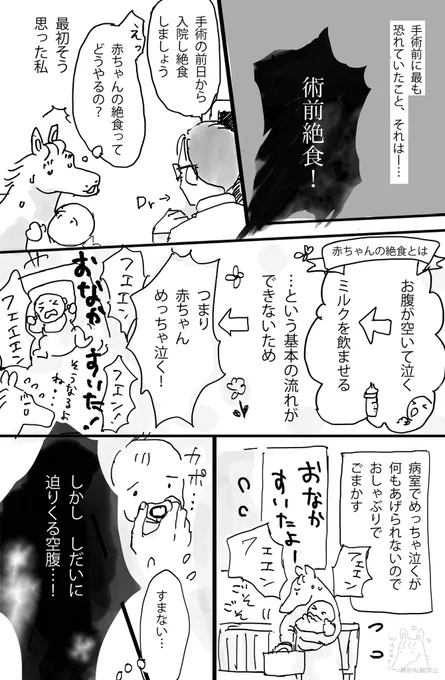 手術前に最も
恐れていたこと、それはー…
術前絶食！
手術の前日から
入院し絶食
しましょう
Dr→
えっ
赤ちゃんの絶食って
どうやるの？
最初そう
思った私
赤ちゃんの絶食とは
お腹が空いて泣く
ミルクを飲ませる
…という基本の流れが
できないため
つまり
赤ちゃん
めっちゃ泣く！
フエエン
おなか
すいた！
フエエエン
そうなるよ
ね…
病室でめっちゃ泣くが
何もあげられないので
おしゃぶりで
ごまかす
おなか
すいたよー
フエエン
フエエン
カポ…
すまない…
しかし しだいに
迫りくる空腹…！
無断転載禁止